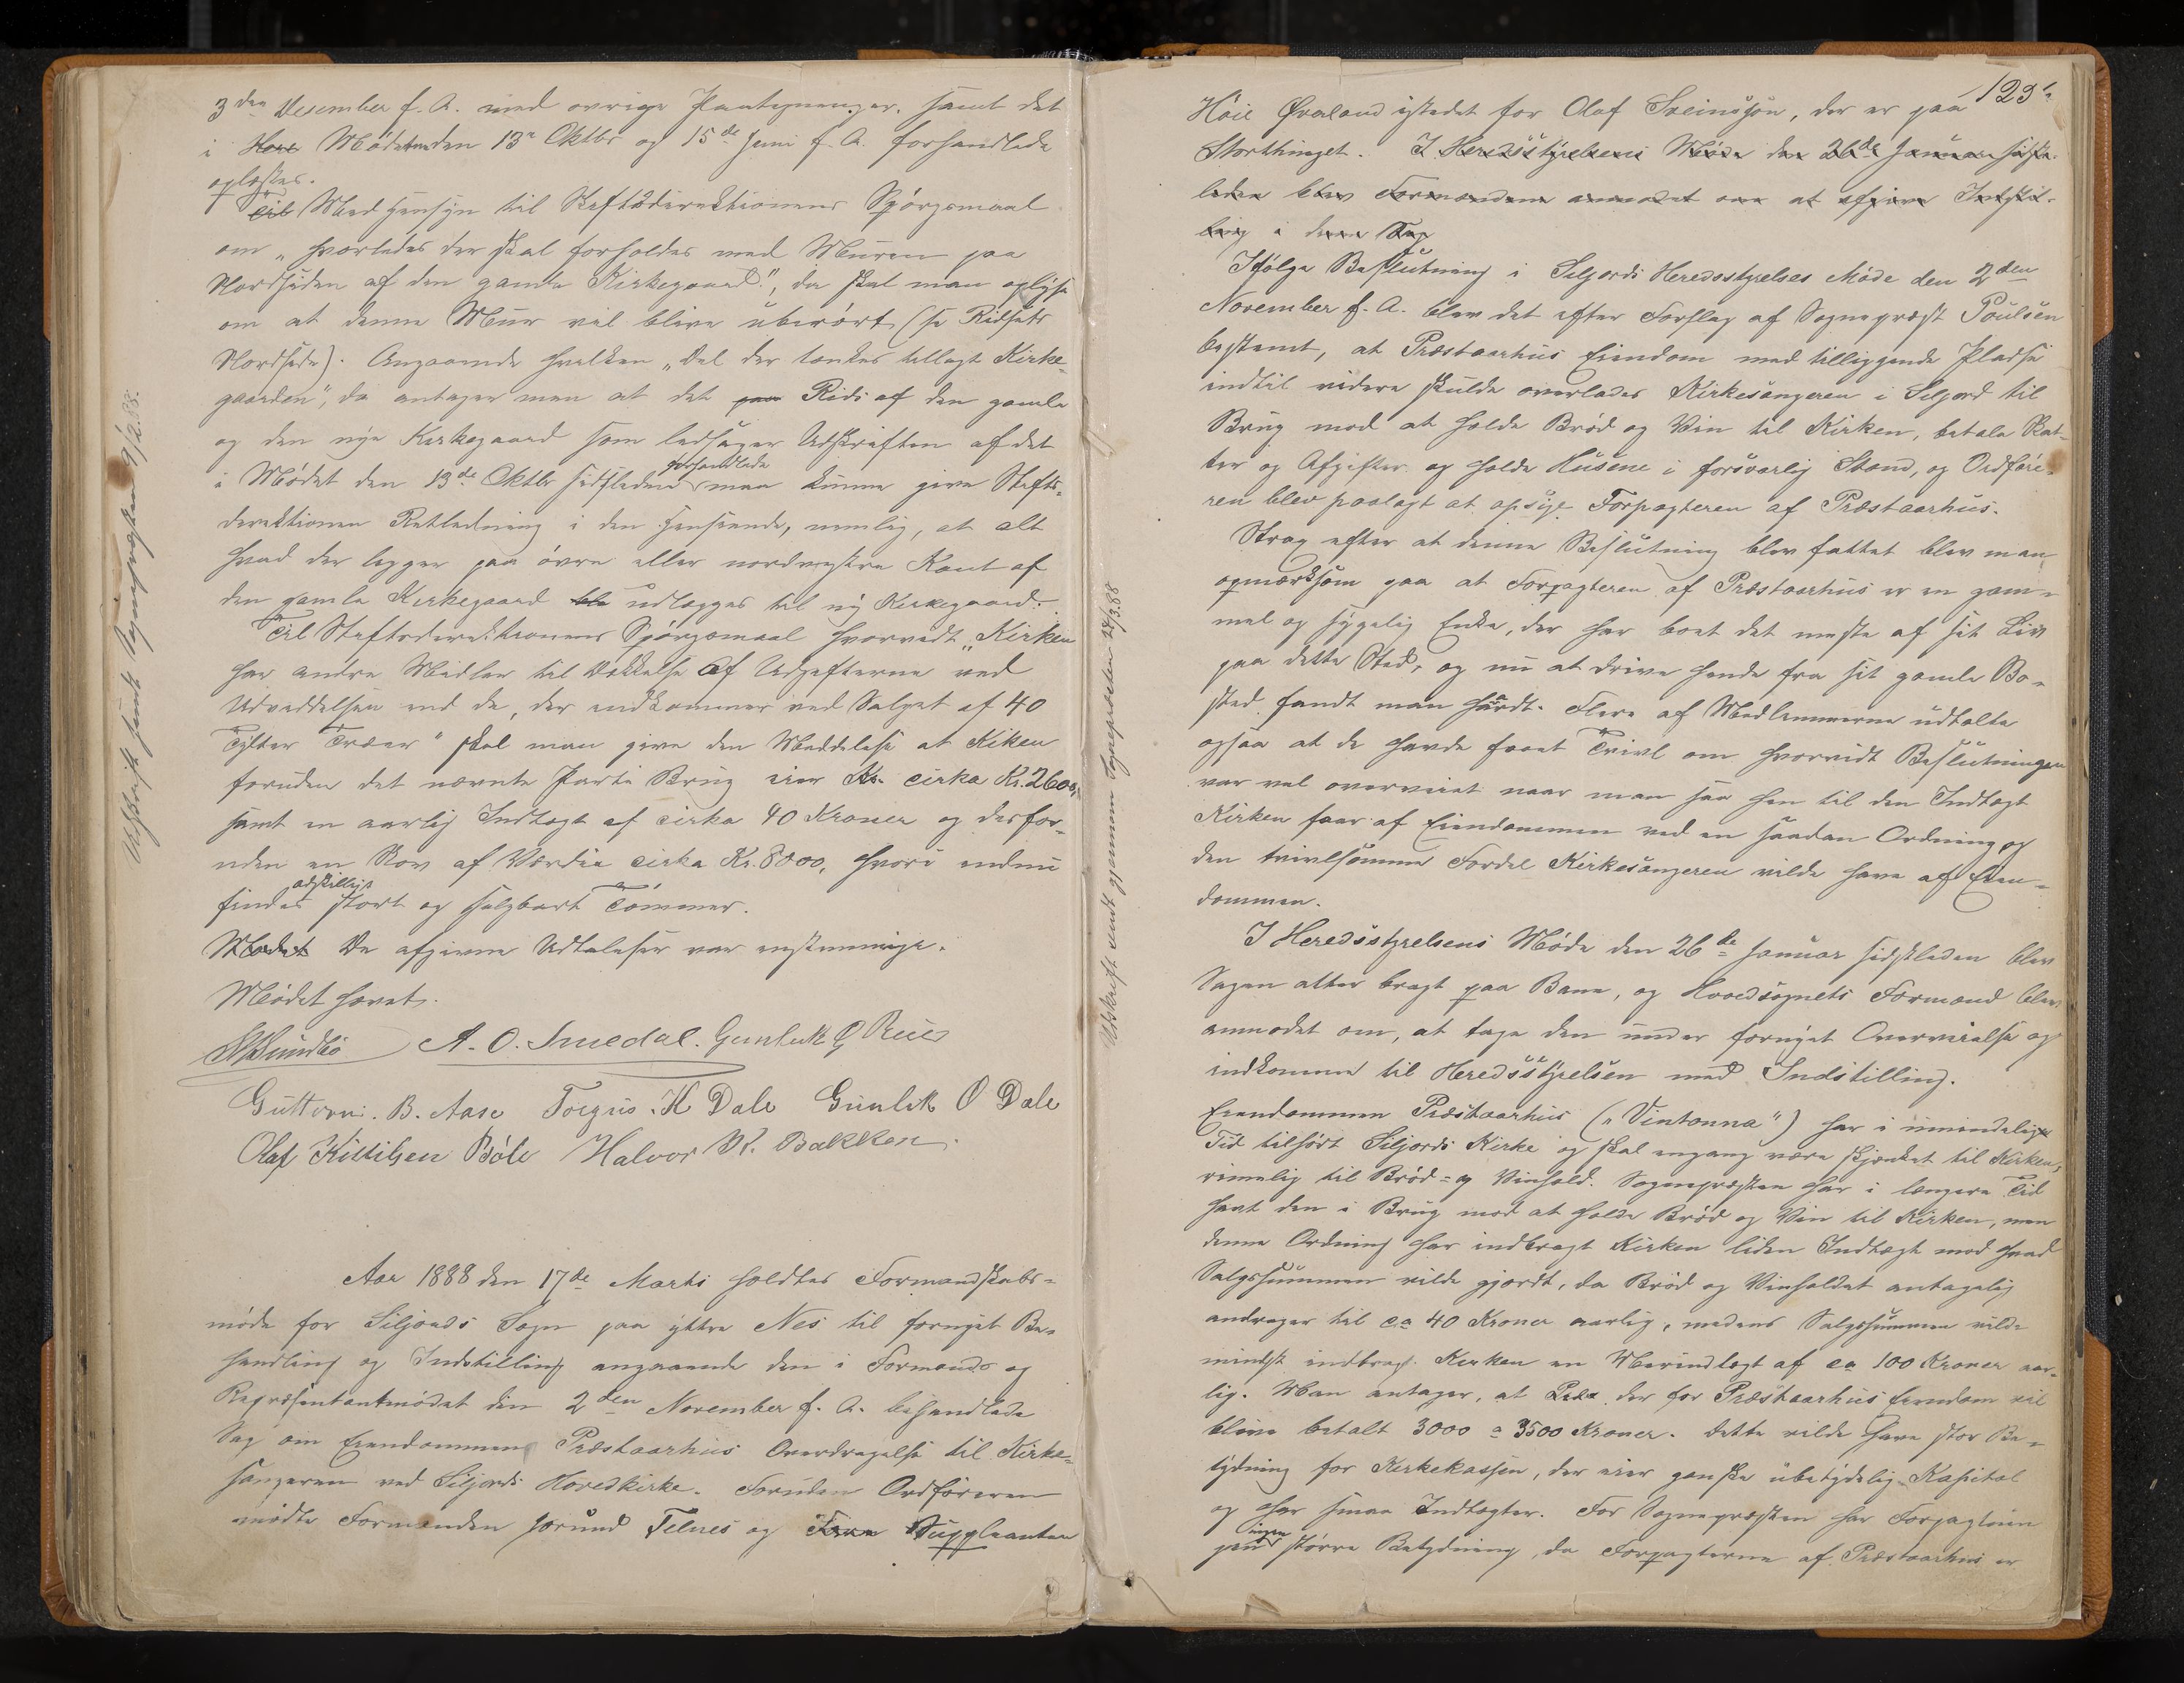 3den Desember f. A. med øvrige Paategninger, samt det
i Møderne den 13de Oktbr og 15de Juni f. A. forhandlede
oplæstes.
Til Med Hensyn til Stiftsdirektionens Spörgsmaal
om „hvorledes der skal forholdes med Muren paa
Nordsiden af den gamle Kirkegaard", da skal man oplyse
om at denne Muur vil blive uberört (se Ridsets
Nordside). Angaaende hvilken „Del der tænkes tillagt Kirke-
gaarden", da antager man at det paa Rids af den gamle
og den nye Kirkegaard som ledsager Udskriften af det
i Mödet den 13de Oktbr sidstleden forhandlede man kunne give Stifts-
direktionen Retledning i den Henseende, nemlig, at alt
hvad der ligger paa övre eller nordvestre Kant af
den gamle Kirkegaard ble udlægges til ny Kirkegaard.
Til Stiftsdirektionens Spörgsmaal hvorvidt „Kirken
har andre Midler til Dækkelse af Udgifterne ved
Udviddelsen end de, der indkommer ved Salget af 40
Tylter Træer" skal man give den Meddelelse at Kiken
foruden det nævnte Parti Brug eier Kr. cirka Kr. 2600,
samt en aarlig Indtægt af cirka 40 Kroner og desfor-
uden en Skov af Værdie cirka Kr. 8000, hvori endnu
findes adskilligt stort og salgbart Tömmer.
Mødet De afgivne Udtalelser var enstemmige.
Mödet hævet.
A. O. Smedal. Gunleik
Guttorm. B. Aase Torgris. H Dale Gunleik O Dale
Olaf Kittilsen Böle Halvor K. Bakken.
Aar 1888 den 17de Marts holdtes Formandskabs-
möde for Siljords Sogn paa yttre Nes til fornyet Be-
handling og Indstilling angaaende den i Formands og
Repræsentantmödet den 2den November f. A. behandlede
Sag om Eiendommen Præstaarhus Overdragelse til Kirke-
sangeren ved Siljords Hovedkirke. Foruden Ordföreren
mödte Formanden Jorund Telnes og Suppleanten
Udskrift sendt Sognepresten 9/2.88.
Udskrift sendt gjennem Sognepresten 24/3.88
123
Höie Øvaland istedet for Olaf Sveinssön, der er paa
Storthinget. I Heredsstyrelsens Möde den 26de Januar sidst-
leden blev Formændene anmodet om at afgive Indstil-
ling i denne Sag
Ifölge Beslutning i Seljords Heredsstyrelses Möde den 2den
November f. A. blev det efter Forslag af Sognepræst Poulsen
bestemt, at Præstaarhus Eiendom med tilliggende Pladse
indtil videre skulde overlades Kirkesangeren i Seljord til
Brug mod at holde Bröd og Vin til Kirken, betale Skat-
ter og Afgifter og holde Husene i forsvarlig Stand, og Ordföre-
ren blev paalagt at opsige Forpagteren af Præstaarhus.
Strax efter at denne Beslutning blev fattet blev man
opmærksom paa at Forpagteren af Præstaarhus er en gam-
mel og sygelig Enke, der har boet det meste af sit Liv
paa dette Sted, og nu at drive hende fra sit gamle Bo-
sted fandt man hårdt. Flere af Medlemmerne udtalte
ogsaa at de havde faaet Tvivl om hvorvidt Beslutningen
var vel overveiet naar man saa hen til den Indtægt
Kirken faar af Eiendommen ved en saadan Ordning og
den tvivlsomme Fordel Kirkesangeren vilde have af Eien-
dommen.
I Heredsstyrelsens Möde den 26de Januar sidstleden blev
Sagen atter bragt paa Bane, og Hovedsognets Formænd blev
anmodet om, at tage den under fornyet Overveielse og
indkomme til Heredsstyrelsen med Indstilling.
Eiendommen Præstaarhus („Vintonna") har i umindelige
Tid tilhört Siljords Kirke og skal engang være skjænket til Kirken,
rimelig til Bröd- og Vinhold. Sognepræsten har i længere Tid
havt den i Brug mod at holde Bröd og Vin til Kirken, men
denne Ordning har indbragt Kirken liden Indtægt mod hvad
Salgssummen vilde gjordt, da Bröd og Vinholdet antagelig
andrager til ca 40 Kroner aarlig, medens Salgssummen vilde
mindst indbragt Kirken en Merindtægt af ca 100 Kroner aar-
lig. Man antager, at der for Præstaarhus Eiendom vil
blive betalt 3000 a 3500 Kroner. Dette vilde have stor Be-
tydning for Kirkekassen, der eier ganske ubetydelig Kapital
og har smaa Indtægter. For Sognepræsten har Forpagtnin
gen ingen större Betydning, da Forpagterne af Præstaarhus er